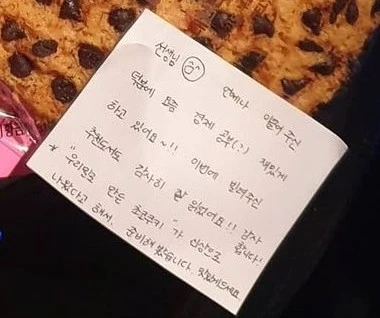 선생님 언제나 이끌어 주신
덕분에 요즘 경제 공부(?) 재밌게
하고 있어요~!! 이번에 빌려주신
추천도서도 감사히 잘 읽었어요!! 감사
합니다!
* "우리밀로 만든 초코쿠키"가 신상으로
나왔다고 해서, 준비해 봤습니다. 맛있게드세요